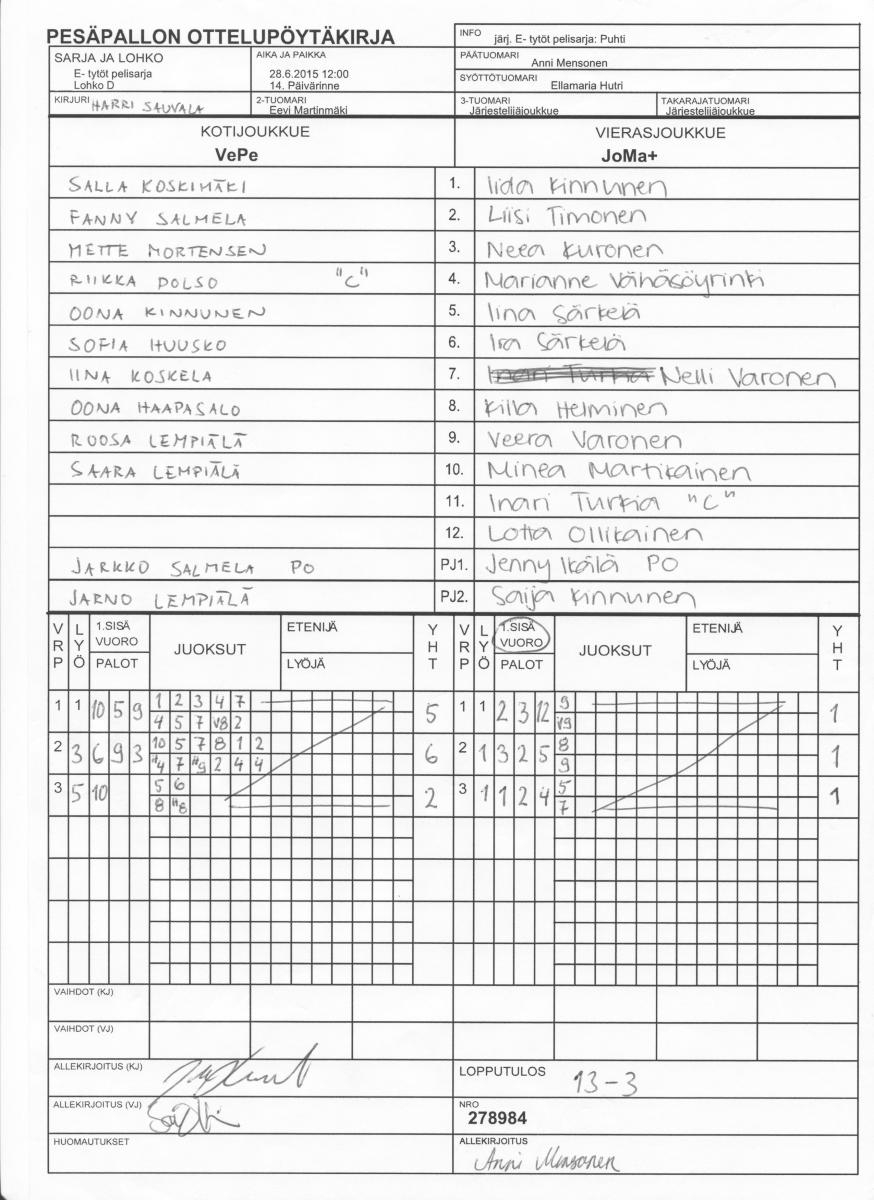 PESÄPALLON OTTELUPÖYTÄKIRJA
INFO järj. E- tytöt pelisarja: Puhti
SARJA JA LOHKO
E- tytöt pelisarja
Lohko D
AIKA JA PAIKKA
28.6.2015 12:00
14. Päivärinne
PÄÄTUOMARI
Anni Mensonen
SYÖTTÖTUOMARI
Ellamaria Hutri
KIRJURI HARRI SAUVALA
2-TUOMARI
Eevi Martinmäki
3-TUOMARI
Järjestelijäjoukkue
TAKARAJATUOMARI
Järjestelijäjoukkue
KOTIJOUKKUE
VePe
VIERASJOUKKUE
JoMa+
SALLA KOSKIMÄKI 1. Iida Kinnunen
FANNY SALMELA 2. Liisi Timonen
METTE MORTENSEN 3. Neea Kuronen
RIIKKA POLSO "C" 4. Marianne Vähäsöyrinki
OONA KINNUNEN 5. Iina Särkelä
SOFIA HUUSKO 6. Ira Särkelä
IINA KOSKELA 7. Inari Turkia Nelli Varonen
OONA HAAPASALO 8. Killa Helminen
ROOSA LEMPIÄLÄ 9. Veera Varonen
SAARA LEMPIÄLÄ 10. Minea Martikainen
11. Inari Turkia "C"
12. Lotta Ollikainen
JARKKO SALMELA PO PJ1. Jenny Ikälä PO
JARNO LEMPIÄLÄ PJ2. Saija Kinnunen
VRP LYÖ 1.SISÄ VUORO PALOT JUOKSUT ETENIJÄ LYÖJÄ YHT VRP LYÖ 1.SISÄ VUORO PALOT JUOKSUT ETENIJÄ LYÖJÄ YHT
1 1 10 5 9 1 2 3 4 7 5 1 1 2 3 12 9 1
4 5 7 V8 2 V9
2 3 6 9 3 10 5 7 8 1 2 6 2 1 3 2 5 8 1
H4 7 H9 2 4 4 9
3 5 10 5 6 2 3 1 1 2 4 5 1
8 H8 7
VAIHDOT (KJ)
VAIHDOT (VJ)
ALLEKIRJOITUS (KJ)
LOPPUTULOS 13-3
ALLEKIRJOITUS (VJ)
NRO
278984
HUOMAUTUKSET
ALLEKIRJOITUS
Anni Mensonen